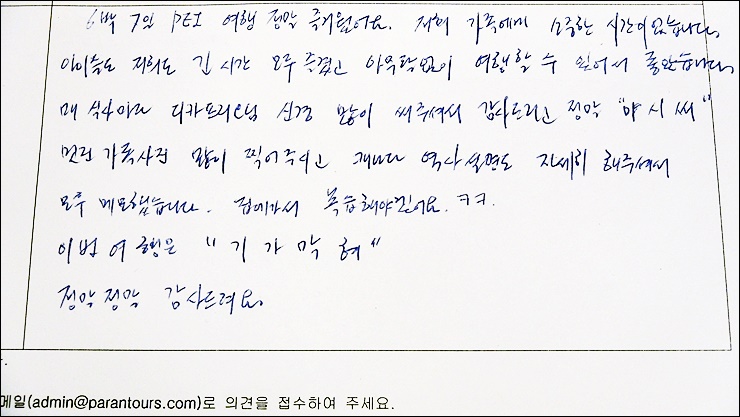 6박 7일 PEI 여행 정말 즐거웠어요. 저희 가족에게 소중한 시간이었습니다.
아이들도 저희도 긴 시간 모두 즐겁고 아무탈없이 여행할 수 있어서 좋았습니다.
매 식사마다 디카프리오님 신경 많이 써주셔서 감사드리고 정말 "아 시 써"
멋진 가족사진 많이 찍어주시고 캐나다 역사 설명도 자세히 해주셔서
모두 메모했습니다. 집에가서 복습해야겠어요. ㅋㅋ.
이번 여행은 "기 가 막 혀"
정말정말 감사드려요.
메일(admin@parantours.com)로 의견을 접수하여 주세요.